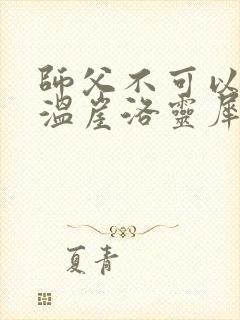 師父不可以
溫崖洛靈犀
夏青